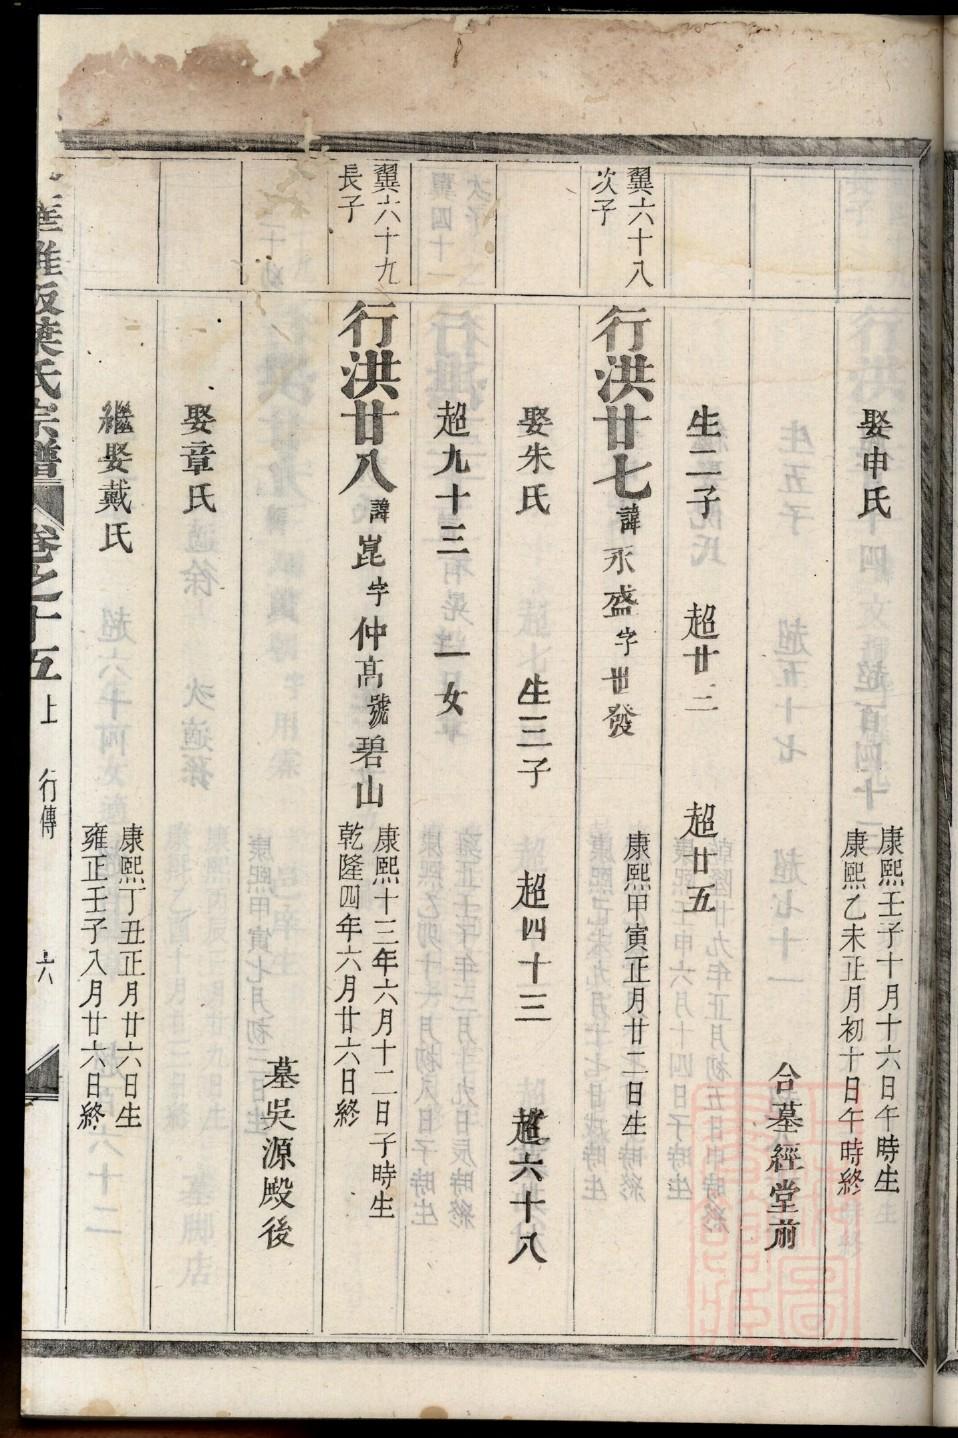 娶申氏
康熙壬子十月十六日午時生
康熙乙未正月初十日午時終
合墓經堂前
生二子　超廿二　超廿五
翼六十八
次子
行洪廿七諱永盛字世發
康熙甲寅正月廿二日生
娶朱氏　生三子　超四十三　超六十八
超九十三　一女
翼六十九
長子
行洪廿八諱崑字仲高號碧山
康熙十三年六月十二日子時生
乾隆四年六月廿六日終
墓吳源殿後
娶章氏
繼娶戴氏
康熙丁丑正月廿六日生
雍正壬子八月廿六日終
氏宗譜
卷之十五上
行傳
六